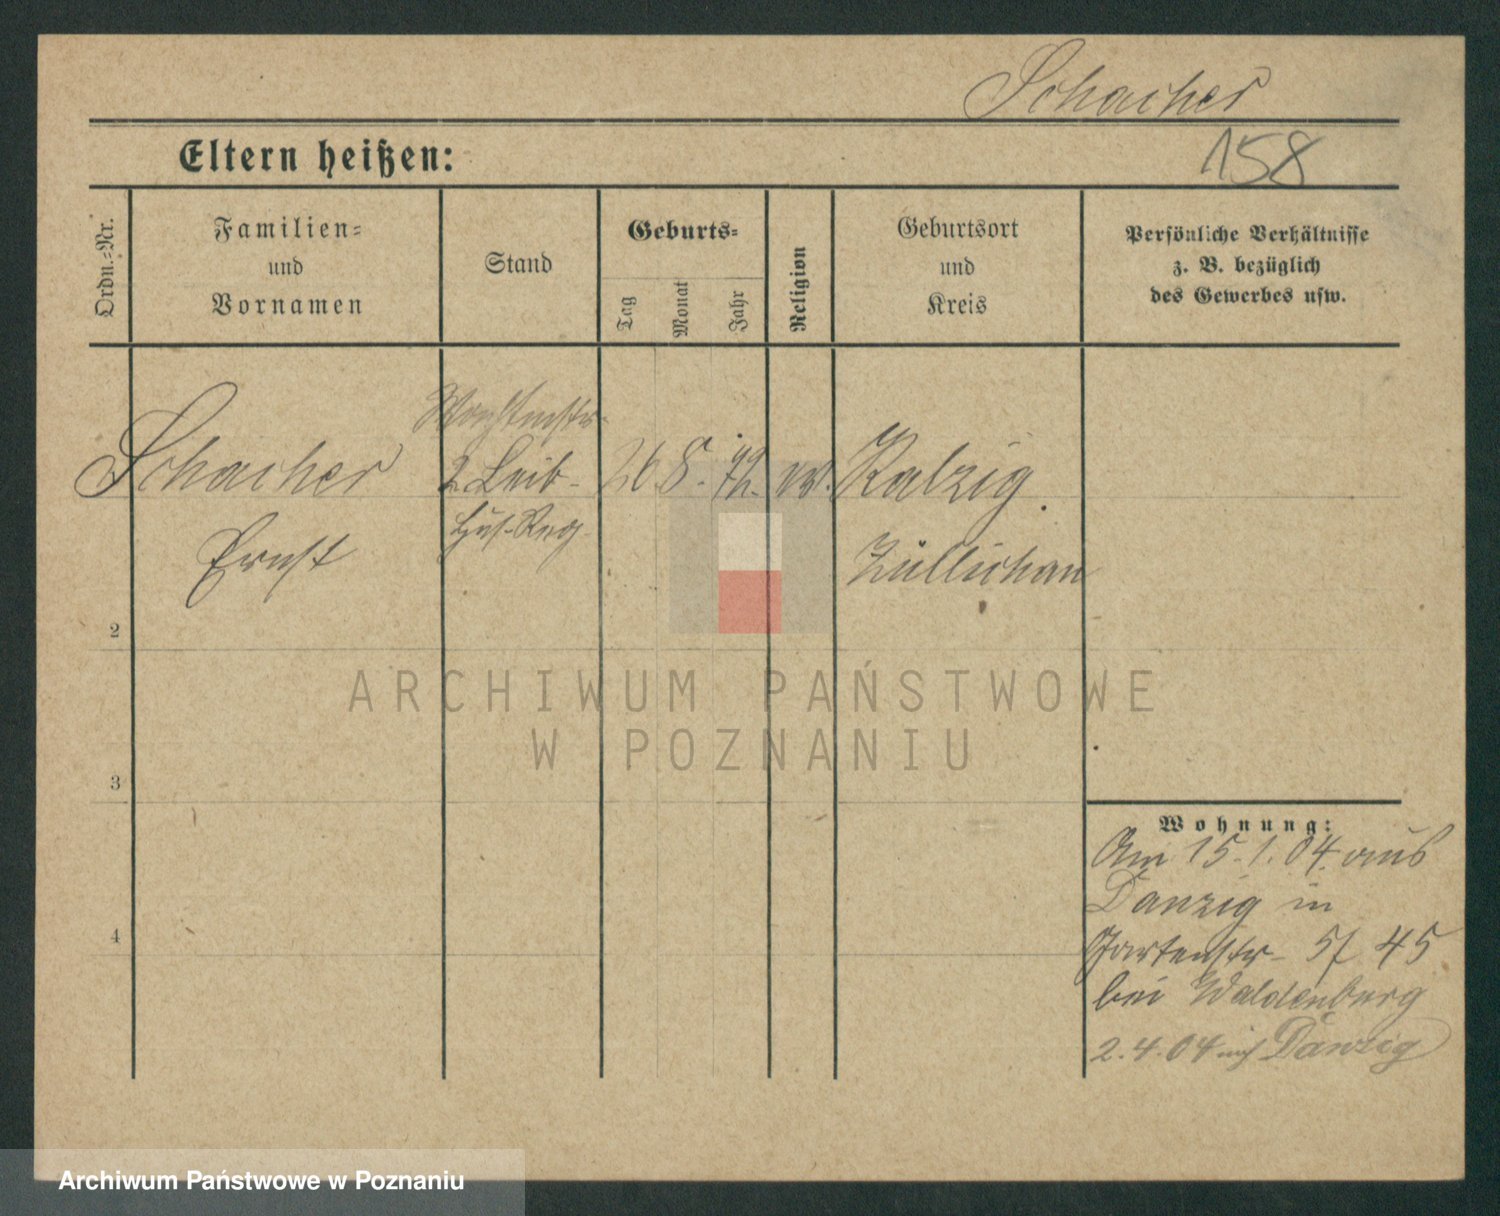 Schacher
158
Eltern heißen:
Ordn.-Nr.
Familien-
und
Vornamen
Stand
Geburts-
Tag
Monat
Jahr
Religion
Geburtsort
und
Kreis
Persönliche Verhältnisse
z. B. bezüglich
des Gewerbes usw.
Schacher
Ernst
2. Leib-
Hus. Reg.
26 8. 72. ev. Kalzig
Züllichau
2
3
4
Wohnung:
Am 15.1.04. aus
Danzig in
Gartenstr. 45
bei Waldenberg
2.4.04 Danzig
ARCHIWUM PAŃSTWOWE
W POZNANIU
Archiwum Państwowe w Poznaniu